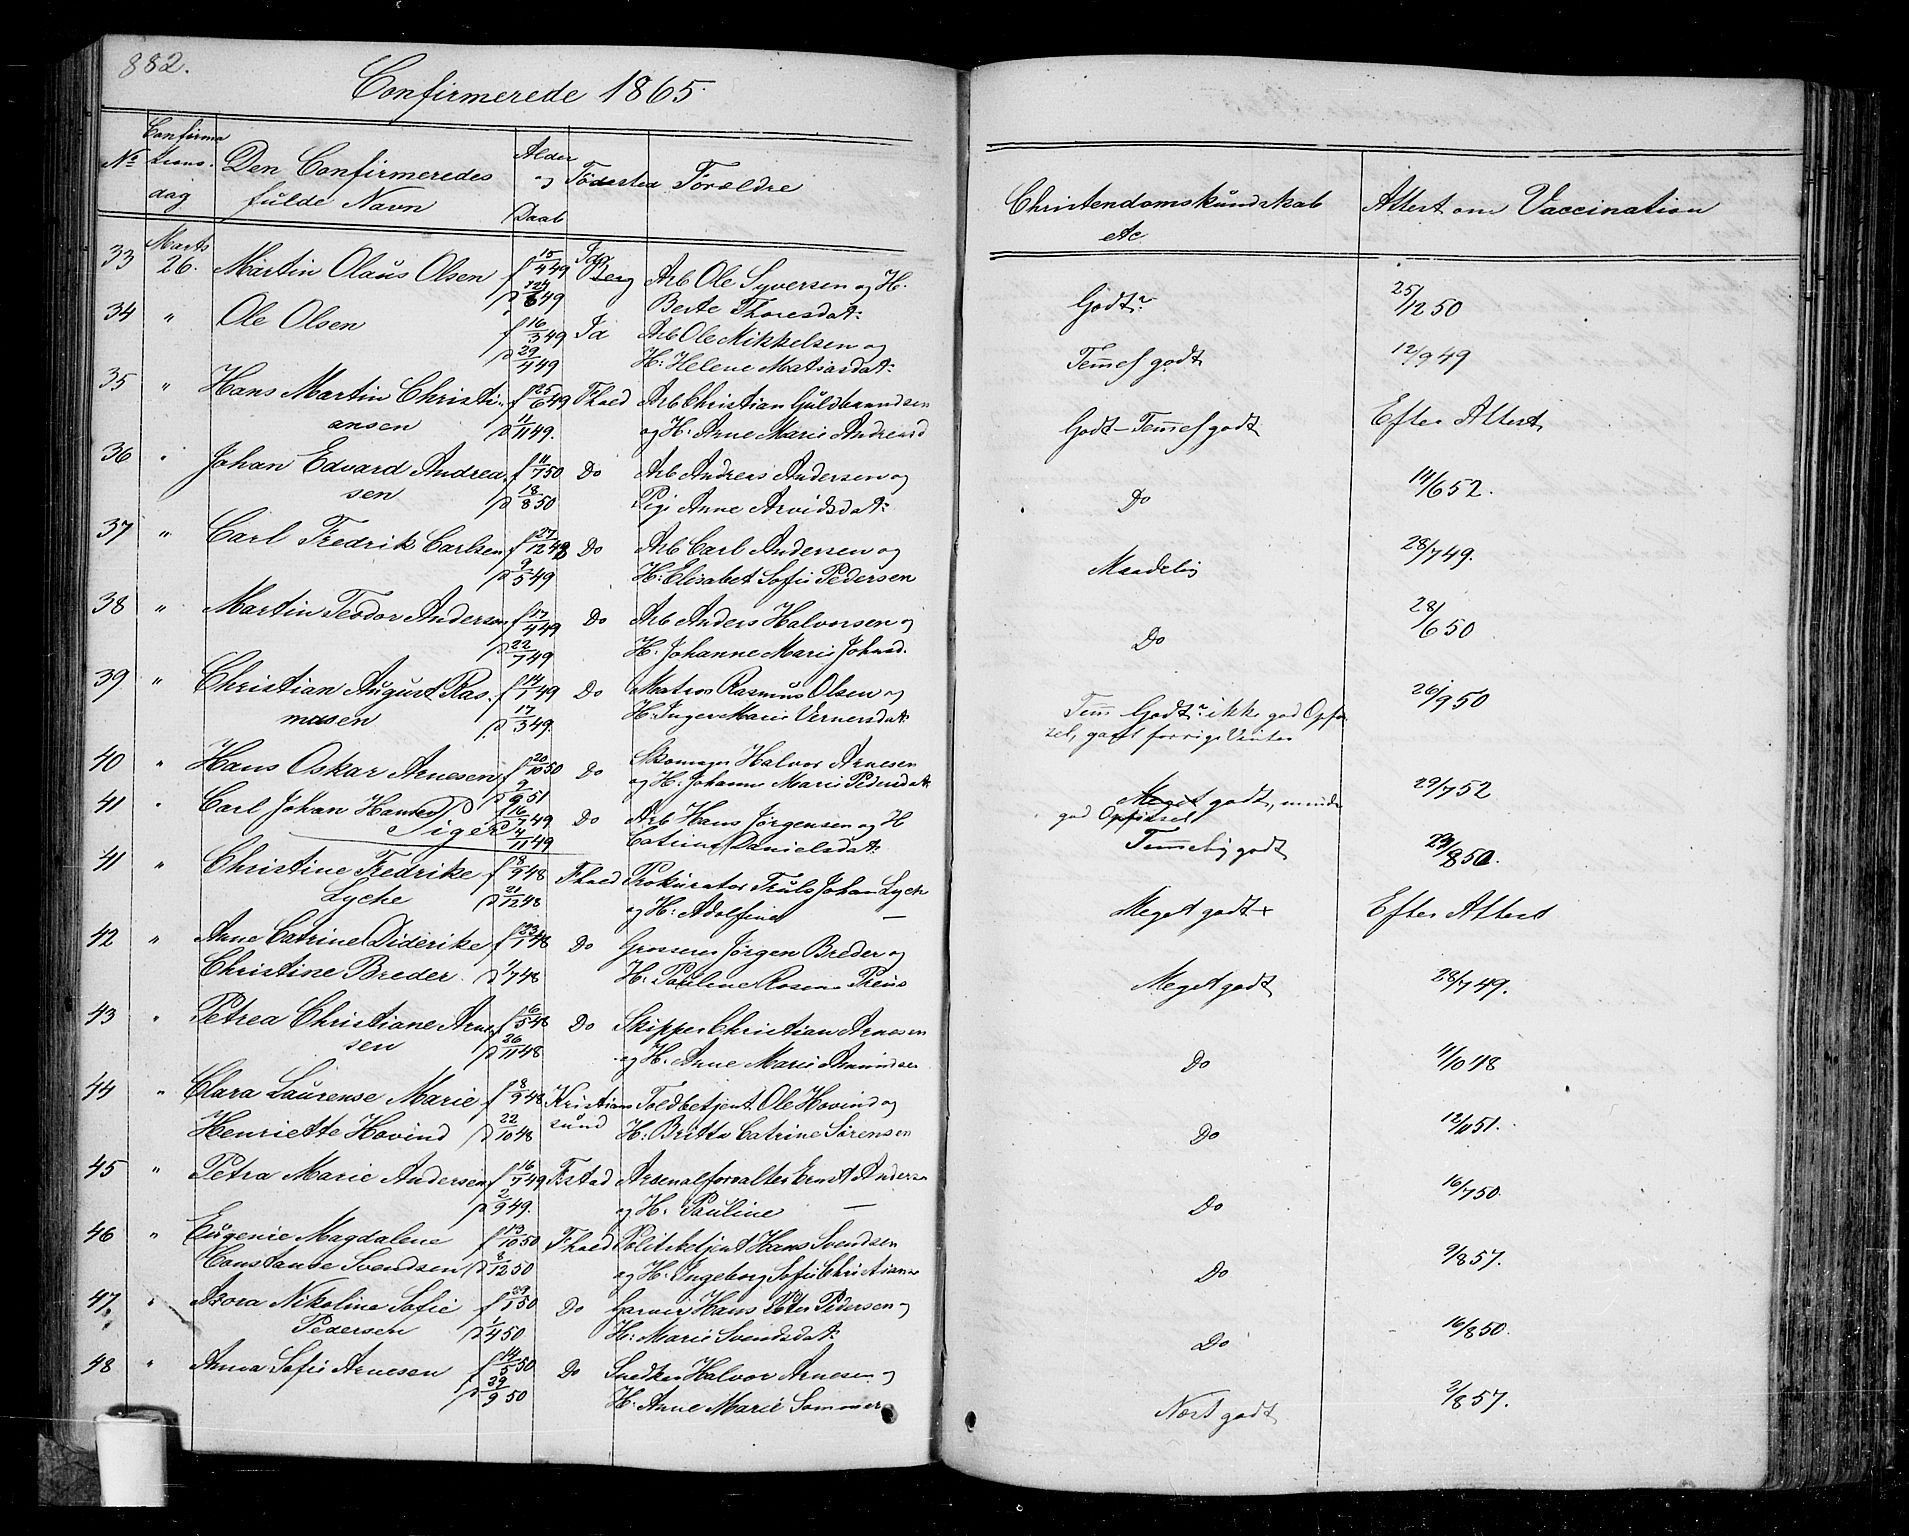 882.
Confirmerede 1865.
No Confirmationsdag Den Confirmeredes fulde Navn Alder og Daab Födested Forældre
Christendomskundskab etc Attest om Vaccination
33 Marts 26. Martin Olaus Olsen f 15/4 49 Berg Arb Ole Syversen og H.
d 49 Berte Thoresdat: Godt 25/12 50
34 " Ole Olsen f 16/3 49 Id Arb Ole Mikkelsen og
d 29/4 49 H: Helene Matiasdat: Temel godt 12/9 49
35 " Hans Martin Christi- f 25/6 49 Fhald Arb Christian Guldbrandsen
ansen d 1/11 49. og H: Anne Marie Andreasd Godt - Temel godt Efter Attest
36 " Johan Edvard Andrea- f 11/7 50 Do Arb Andreas Andersen og
sen d 18/8 50 Pige Anne Arvidsdat: Do 14/6 52.
37 " Carl Fredrik Carlsen f 27/12 48 Do Arb Carl Andersen og
d 9/5 49 H: Elisabet Sofie Pedersen Maadelig 28/7 49.
38 " Martin Teodor Andersen f 17/4 49 Do Arb Anders Halvorsen og
d 22/7 49 H: Johanne Marie Johnsd. Do 28/6 50
39 " Christian August Ras- f 14/1 49 Do Matros Rasmus Olsen og
mussen d 17/3 49. H: Inger Marie Vernersdat: Tem Godt ikke god Opfø-
sel, gaaet forrige Vinter 26/9 50
40 " Hans Oskar Arnesen f 20/10 50 Do Skomager Halvor Arnesen
d 9/9 51 og H: Johanne Marie Pedersdat: Meget godt, mindre
god Opførsel 29/7 52
41 " Carl Johan Hansen f 16/7 49 Do Arb Hans Jørgensen og H
d 4/11 49 Catrine Danielsdat: Temelig godt 23/8 50.
Piger
41 " Christine Fredrike f 8/9 48 Fhald Prokurator Truls Johan Lyche
Lyche d 21/12 48 og H: Adolfine — Meget godt + Efter Attest
42 " Anne Catrine Diderike f 23/1 48 Do Grosserer Jørgen Breder og
Christine Breder. d 1/7 48 H: Pauline Rosine Preus Meget godt 28/7 49.
43 " Petrea Christiane Arne- f 16/5 48 Do Skipper Christian Arnesen
sen d 26/11 48 og H: Anne Marie Amundsen Do 4/10 48
44 " Clara Laurense Marie f 8/9 48 Kristian- Toldbetjent Ole Hovind og
Henriette Hovind d 22/10 48 sund H: Britta Catrine Sørensen Do 12/10 51.
45 " Petra Marie Andersen f 16/7 49 Fstad Arsenalforvalter Ernst Andersen
d 2/9 49. og H: Pauline — Do 16/7 50.
46 " Eugenie Magdalene f 13/10 50 Fhald Politibetjent Hans Svendsen
Constanse Svendsen d 8/12 50 og H: Ingeborg Sofie Christians Do 9/8 57.
47. " Azora Nikoline Sofie f 29/1 50 Do Garver Hans Peter Pedersen og
Pedersen d 1/4 50 H: Marie Svendsdat: Do 16/8 50.
48 " Anna Sofie Arnesen f 14/5 50 Do Snedker Halvor Arnesen og
d 29/9 50 H: Anne Marie Sommer Næst godt 2/8 57.